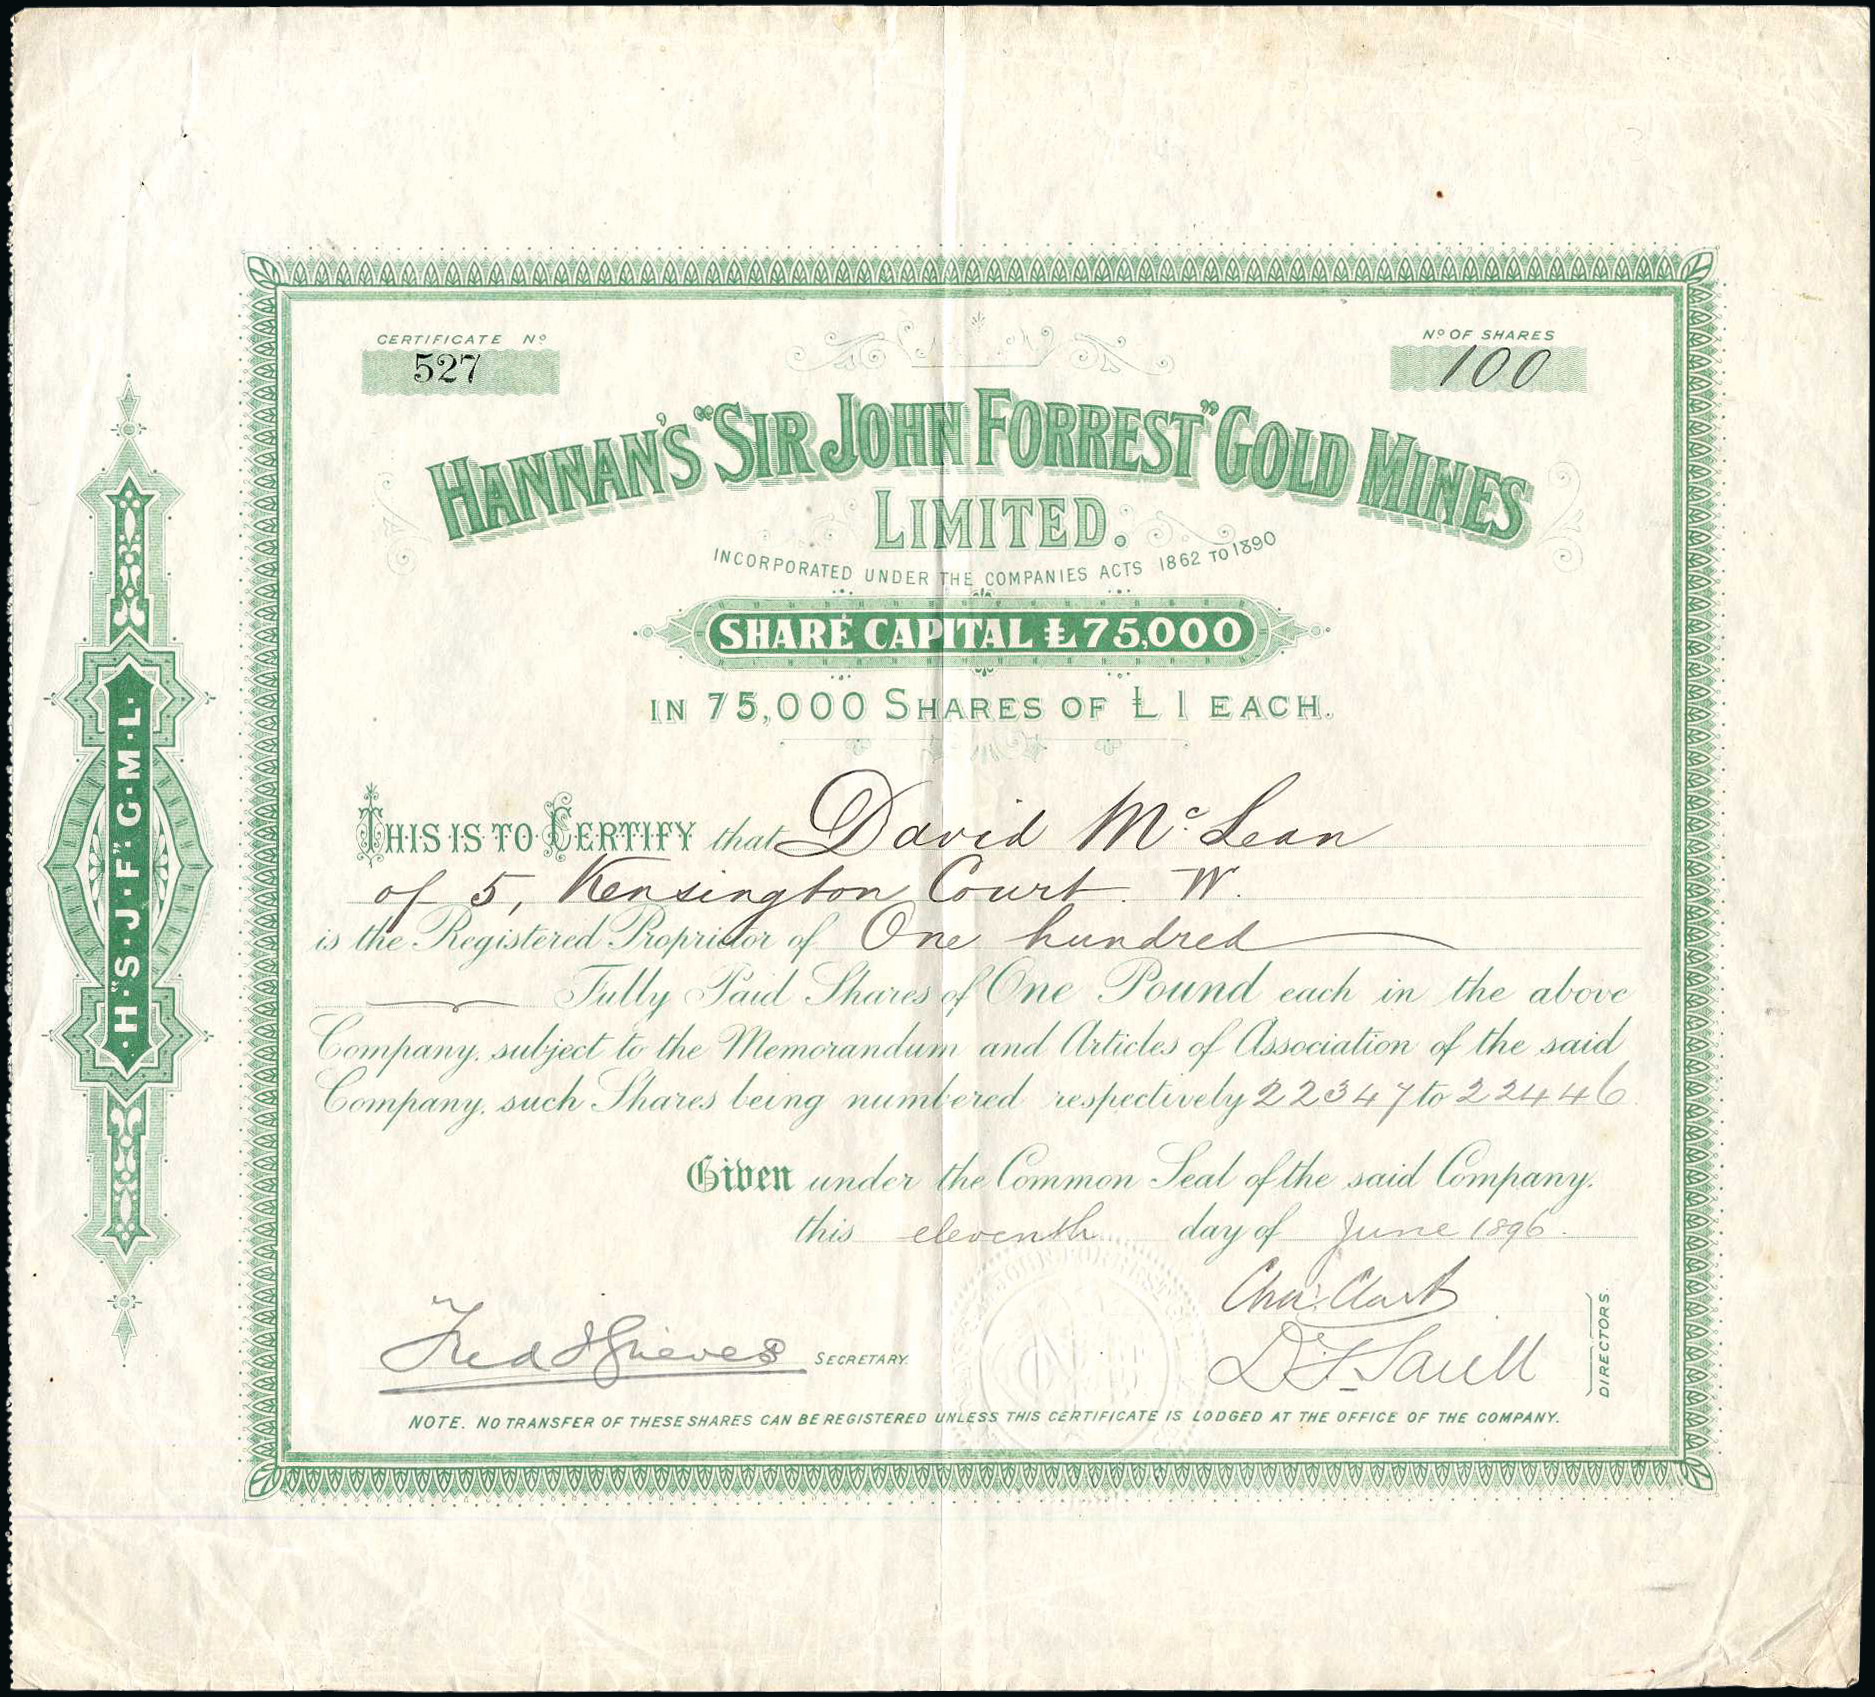 CERTIFICATE Nº
527
Nº OF SHARES
100
HANNAN'S "SIR JOHN FORREST" GOLD MINES
LIMITED.
INCORPORATED UNDER THE COMPANIES ACTS 1862 TO 1890
SHARE CAPITAL £75,000
IN 75,000 SHARES OF £1 EACH.
H·"S·J·F"·G·M·L·
THIS IS TO CERTIFY that David McLean
of 5, Kensington Court. W.
is the Registered Proprietor of One hundred
Fully Paid Shares of One Pound each in the above
Company, subject to the Memorandum and Articles of Association of the said
Company, such Shares being numbered respectively 22347 to 22446.
Given under the Common Seal of the said Company,
this eleventh day of June 1896.
Chas. Clark
Fred J Grieves SECRETARY.
DIRECTORS.
NOTE. NO TRANSFER OF THESE SHARES CAN BE REGISTERED UNLESS THIS CERTIFICATE IS LODGED AT THE OFFICE OF THE COMPANY.